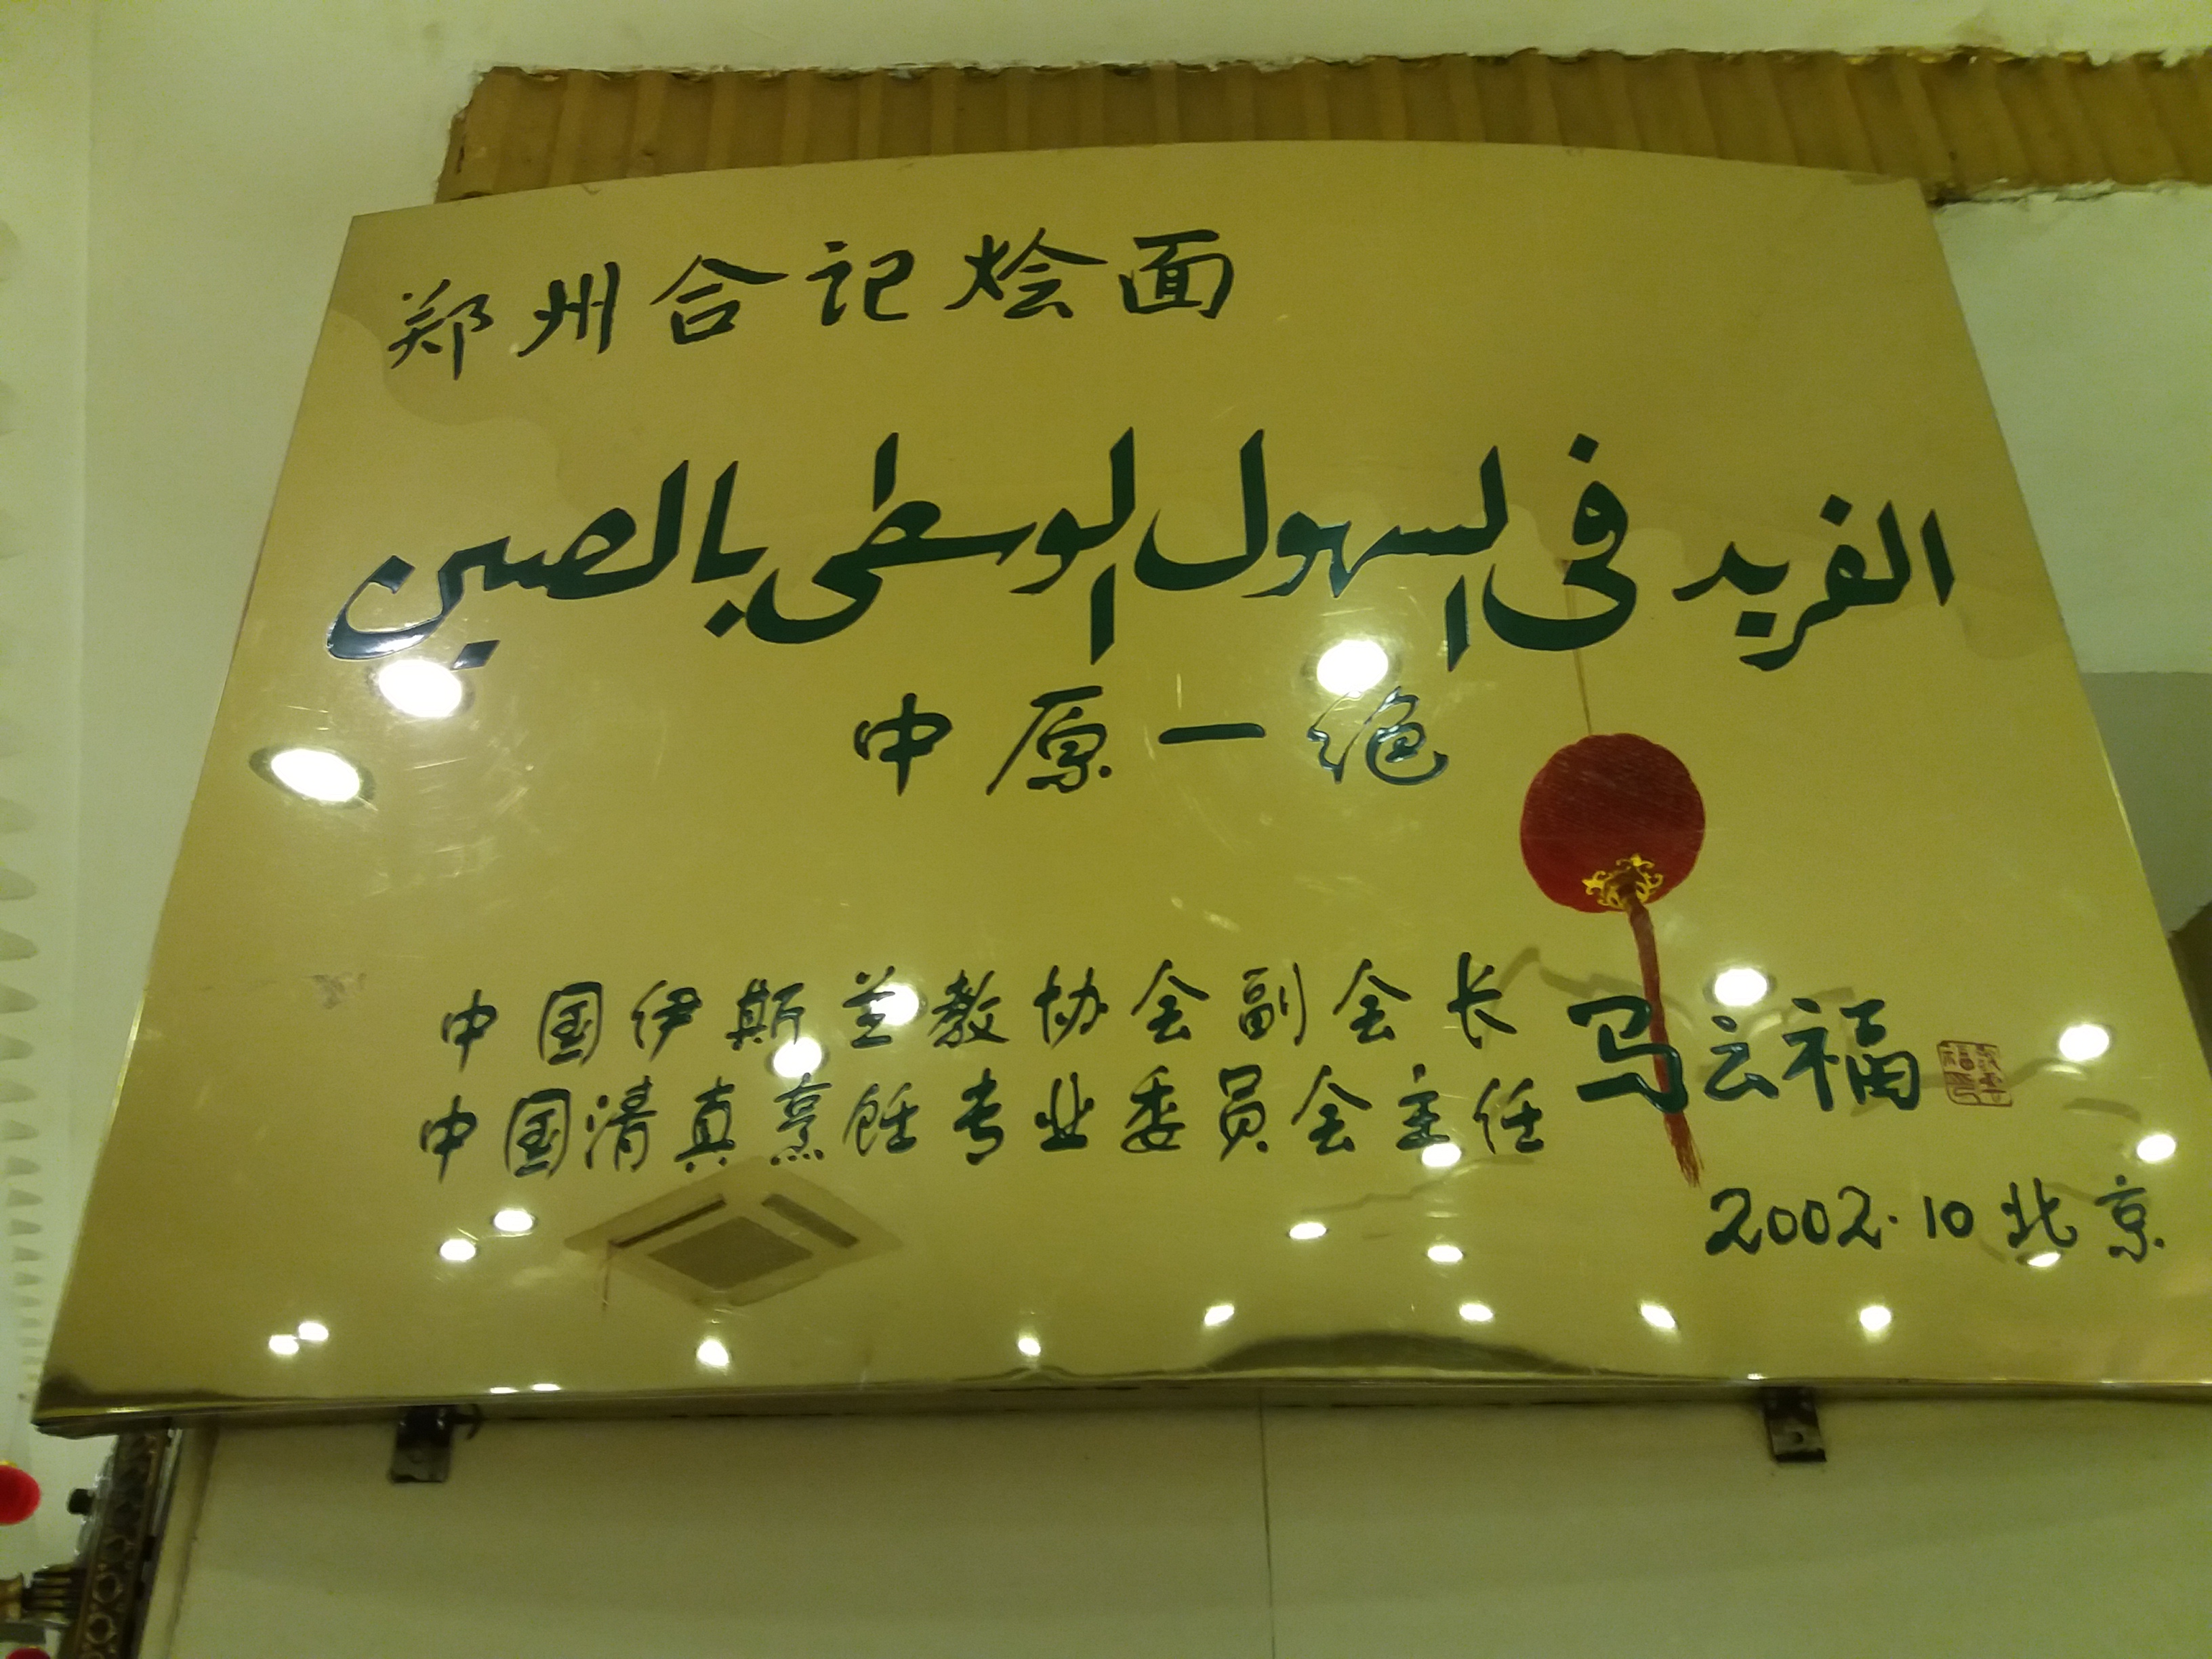 郑州合记烩面
الفريد فى السهول الوسطى بالصين
中原一绝
中国伊斯兰教协会副会长
中国清真烹饪专业委员会主任
马云福
2002.10北京